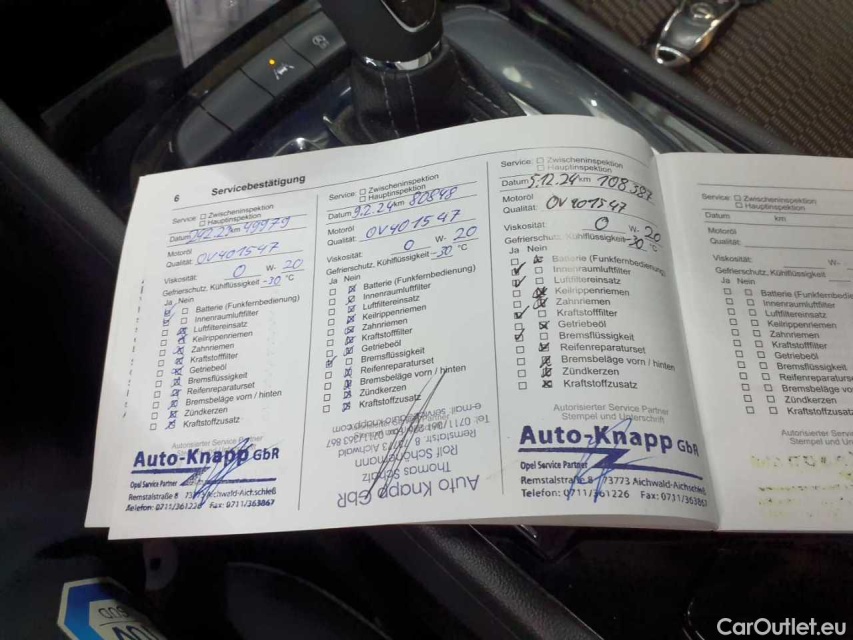 6 Servicebestätigung
Service: Zwischeninspektion
Hauptinspektion
Datum km 49979
Motoröl
Qualität: OV401547
Viskosität: 0 W- 20
Gefrierschutz, Kühlflüssigkeit -30 °C
Ja Nein
Batterie (Funkfernbedienung)
Innenraumluftfilter
Luftfiltereinsatz
Keilrippenriemen
Zahnriemen
Kraftstofffilter
Getriebeöl
Bremsflüssigkeit
Reifenreparaturset
Bremsbeläge vorn / hinten
Zündkerzen
Kraftstoffzusatz
Autorisierter Service Partner
Stempel und Unterschrift
Auto-Knapp GbR
Opel Service Partner
Remstalstraße 8 73773 Aichwald-Aichschieß
Telefon: 0711/361226 Fax: 0711/363867
Service: Zwischeninspektion
Hauptinspektion
Datum 9.2.24 km 80848
Motoröl
Qualität: OV401547
Viskosität: 0 W- 20
Gefrierschutz, Kühlflüssigkeit -30 °C
Ja Nein
Batterie (Funkfernbedienung)
Innenraumluftfilter
Luftfiltereinsatz
Keilrippenriemen
Zahnriemen
Kraftstofffilter
Getriebeöl
Bremsflüssigkeit
Reifenreparaturset
Bremsbeläge vorn / hinten
Zündkerzen
Kraftstoffzusatz
Auto Knapp GbR
Thomas Scholz
Rolf Schönemann
Remstalstr. 8, 73773 Aichwald
Service: Zwischeninspektion
Hauptinspektion
Datum 5.12.24 km 108387
Motoröl
Qualität: OV401547
Viskosität: 0 W- 20
Gefrierschutz, Kühlflüssigkeit -30 °C
Ja Nein
Batterie (Funkfernbedienung
Innenraumluftfilter
Luftfiltereinsatz
Keilrippenriemen
Zahnriemen
Kraftstofffilter
Getriebeöl
Bremsflüssigkeit
Reifenreparaturset
Bremsbeläge vorn / hinten
Zündkerzen
Kraftstoffzusatz
Autorisierter Service Partner
Stempel und Unterschrift
Auto-Knapp GbR
Opel Service Partner
Remstalstraße 8 73773 Aichwald-Aichschieß
Telefon: 0711/361226 Fax: 0711/363867
Service: Zwischeninspektion
Hauptinspektion
Datum km
Motoröl
Qualität:
Viskosität: W-
Gefrierschutz, Kühlflüssigkeit
Ja Nein
Batterie (Funkfernbedie
Innenraumluftfilter
Luftfiltereinsatz
Keilrippenriemen
Zahnriemen
Kraftstofffilter
Getriebeöl
Bremsflüssigkeit
Reifenreparaturset
Bremsbeläge vorn
Zündkerzen
Kraftstoffzusatz
Autorisierter Servi
Stempel und Un
CarOutlet.eu